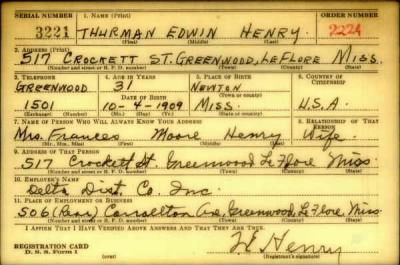 SERIAL NUMBER 1. NAME (Print) ORDER NUMBER
3221 THURMAN EDWIN HENRY 2224
(First) (Middle) (Last)
2. ADDRESS (Print)
517 CROCKETT ST. GREENWOOD, LEFLORE MISS.
(Number and street or R. F. D. number) (Town) (County) (State)
3. TELEPHONE 4. AGE IN YEARS 5. PLACE OF BIRTH 6. COUNTRY OF CITIZENSHIP
GREENWOOD 31 NEWTON
DATE OF BIRTH (Town or county)
1501 10-4-1909 MISS. U.S.A.
(Exchange) (Number) (Mo.) (Day) (Yr.) (State or country)
7. NAME OF PERSON WHO WILL ALWAYS KNOW YOUR ADDRESS 8. RELATIONSHIP OF THAT PERSON
Mrs. Frances Moore Henry Wife
(Mr., Mrs., Miss) (First) (Middle) (Last)
9. ADDRESS OF THAT PERSON
517 Crockett St. Greenwood LeFlore Miss
(Number and street or R. F. D. number) (Town) (County) (State)
10. EMPLOYER'S NAME
Delta Dist. Co. Inc.
11. PLACE OF EMPLOYMENT OR BUSINESS
506 (Rear) Carrollton Ave, Greenwood, LeFlore, Miss
(Number and street or R. F. D. number) (Town) (County) (State)
I AFFIRM THAT I HAVE VERIFIED ABOVE ANSWERS AND THAT THEY ARE TRUE.
REGISTRATION CARD
D. S. S. Form 1 Henry
(Registrant's signature)